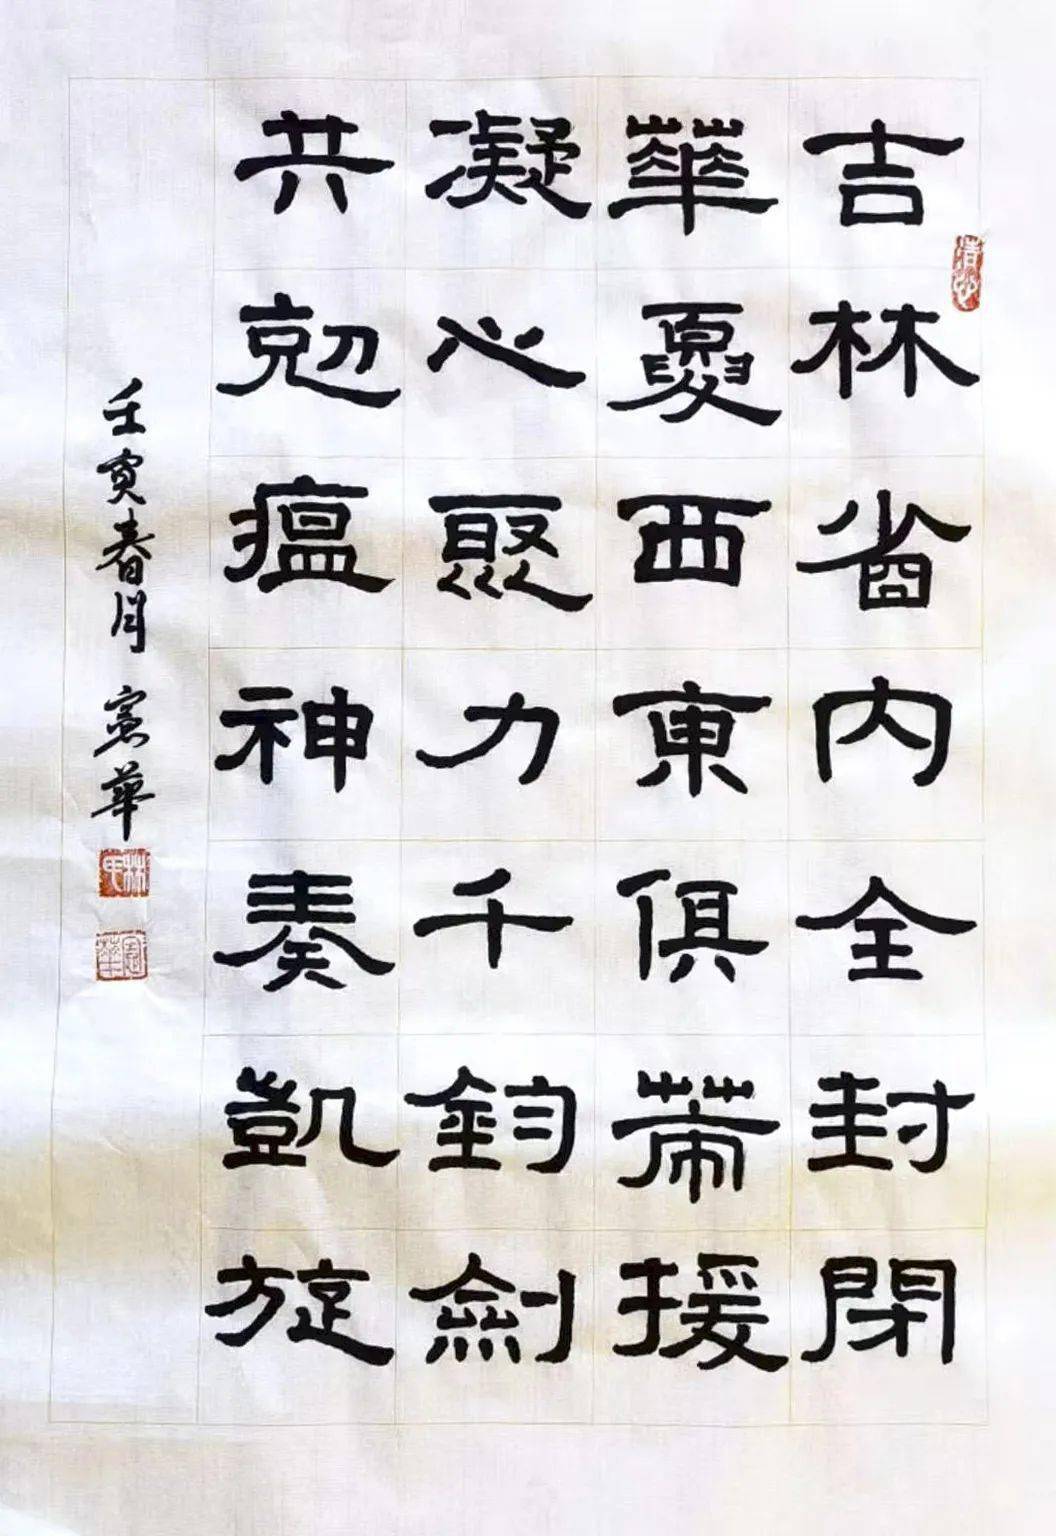 吉林省内全封閉
華夏西東俱帶援
凝心聚力千鈞劍
共剋瘟神奏凱旋
壬寅春月 憲華
清心